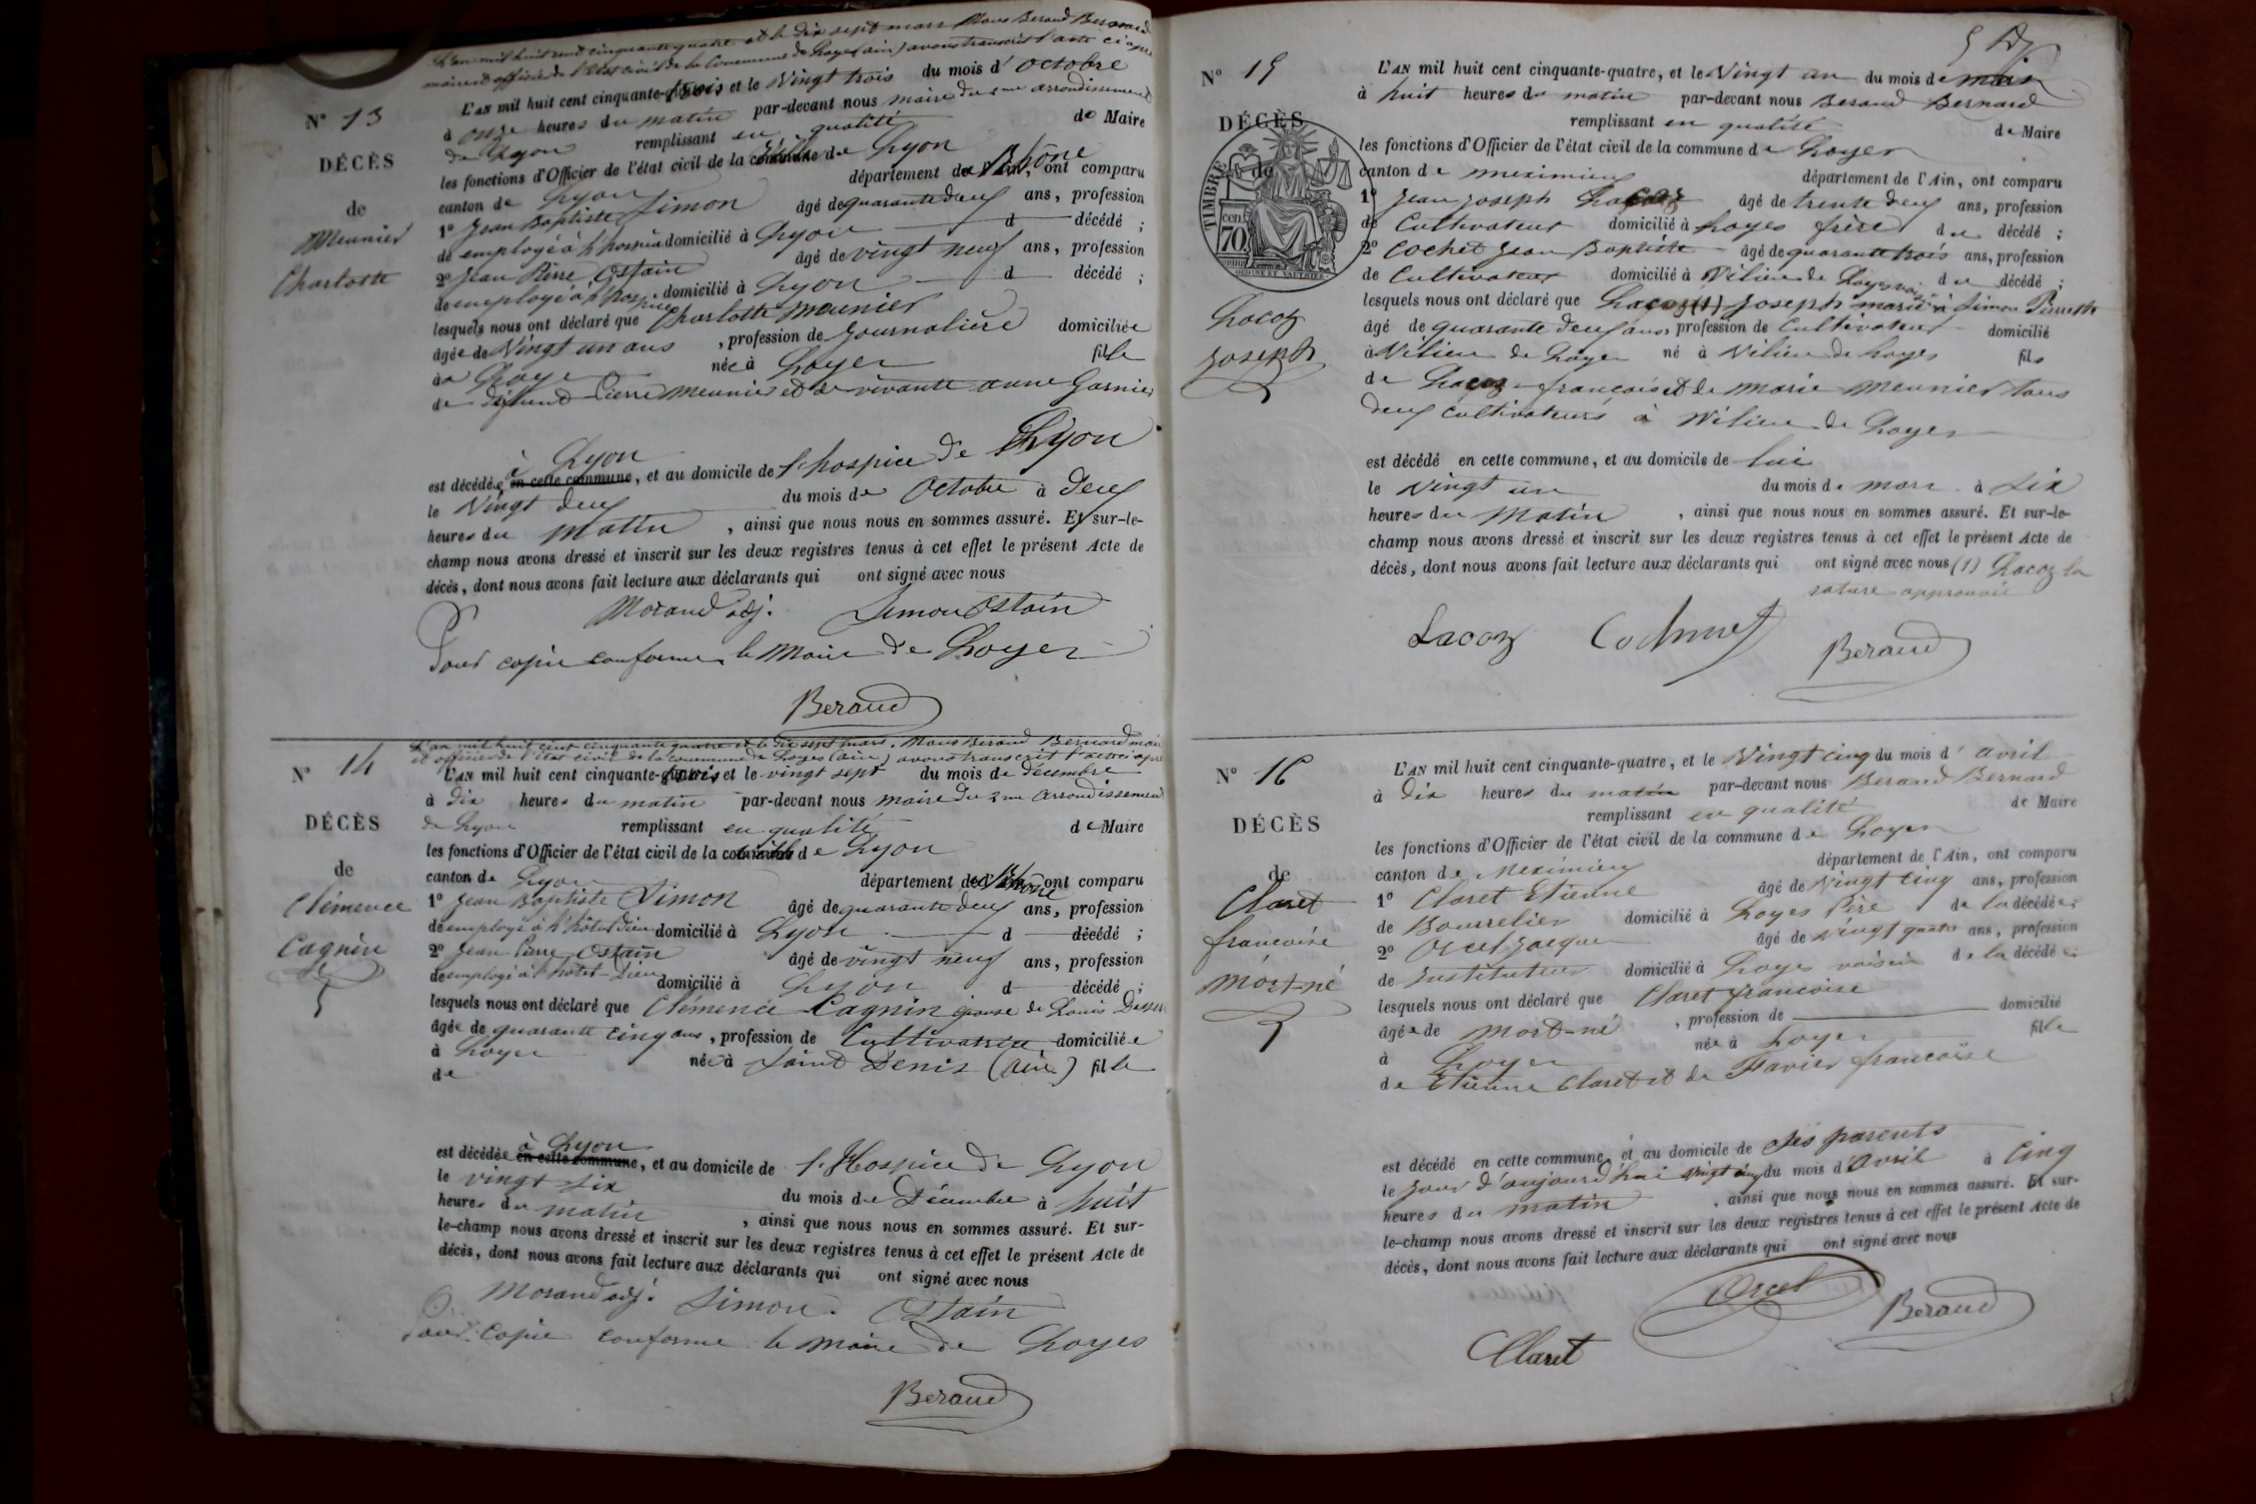 L'an mil huit cent cinquante quatre et le dix sept mars Nous Beraud Bernard
maire et officier de l'état civil de la Commune de Loyes (ain) avons transcrit l'acte ci après
N° 13
L'AN mil huit cent cinquante-trois et le Vingt trois du mois d' octobre
à onze heures du matin par-devant nous maire du 2me arrondissement
de Lyon remplissant en qualité de Maire
DÉCÈS
les fonctions d'Officier de l'état civil de la ville de Lyon
canton de Lyon département du Rhône, ont comparu
de
1° Jean Baptiste Simon âgé de quarante deux ans, profession
Meunier
de employé à l'hospice domicilié à Lyon d décédé ;
2° Jean Pierre Ostain âgé de vingt neuf ans, profession
Charlotte
de employé à l'hospice domicilié à Lyon d décédé ;
lesquels nous ont déclaré que Charlotte Meunier
âgée de Vingt un ans, profession de Journalière domiciliée
à Loyes née à Loyes fille
de défunt Pierre Meunier et de vivante anne Garnier
à Lyon
est décédée en cette commune, et au domicile de l'hospice de Lyon
le Vingt deux du mois de Octobre à deux
heures du matin, ainsi que nous nous en sommes assuré. Et sur-le-
champ nous avons dressé et inscrit sur les deux registres tenus à cet effet le présent Acte de
décès, dont nous avons fait lecture aux déclarants qui ont signé avec nous
Morand adj. Simon Ostain
Pour copie conforme le Maire de Loyes
Beraud
L'an mil huit cent cinquante quatre et le dix sept mars, Nous Beraud Bernard maire
et officier de l'état civil de la commune de Loyes (ain) avons transcrit l'acte ci après
N° 14
L'AN mil huit cent cinquante-trois et le vingt sept du mois de décembre
à dix heures du matin par-devant nous maire du 2me arrondissement
DÉCÈS
de Lyon remplissant en qualité de Maire
les fonctions d'Officier de l'état civil de la ville de Lyon
de
canton de Lyon département du Rhône ont comparu
Clémence
1° Jean Baptiste Simon âgé de quarante deux ans, profession
de employé à l'hôtel Dieu domicilié à Lyon d décédé ;
Cagnin
2° Jean Pierre Ostain âgé de vingt neuf ans, profession
de employé à l'hôtel-Dieu domicilié à Lyon d décédé ;
lesquels nous ont déclaré que Clémence Cagnin épouse de Louis
âgée de quarante cinq ans, profession de Cultivatrice domiciliée
à Loyes née à Saint Denis (ain) fille
de
à Lyon
est décédée en cette commune, et au domicile de l'Hospice de Lyon
le vingt six du mois de Décembre à huit
heures du matin, ainsi que nous nous en sommes assuré. Et sur-
le-champ nous avons dressé et inscrit sur les deux registres tenus à cet effet le présent Acte de
décès, dont nous avons fait lecture aux déclarants qui ont signé avec nous
Morand adj. Simon. Ostain
Pour Copie conforme le Maire de Loyes
Beraud
N° 15
L'AN mil huit cent cinquante-quatre, et le Vingt un du mois de mars
à huit heures du matin par-devant nous Beraud Bernard
DÉCÈS
remplissant en qualité de Maire
les fonctions d'Officier de l'état civil de la commune de Loyes
de
TIMBRE
cen. 70
canton de meximieux département de l'Ain, ont comparu
1° Jean Joseph Lacoz âgé de trente deux ans, profession
de Cultivateur domicilié à Loyes frère du décédé ;
2° Cochet Jean Baptiste âgé de quarante trois ans, profession
de Cultivateur domicilié à Vilieu de Loyes voisin du décédé ;
Lacoz
lesquels nous ont déclaré que Lacoz (1) Joseph marié à Simon Pierrette
Joseph
âgé de quarante deux ans, profession de Cultivateur domicilié
à Vilieu de Loyes né à Vilieu de Loyes fils
de Lacoz françois et de Marie Meunier tous
deux cultivateurs à Vilieu de Loyes
est décédé en cette commune, et au domicile de lui
le Vingt un du mois de mars à six
heures du Matin, ainsi que nous nous en sommes assuré. Et sur-le-
champ nous avons dressé et inscrit sur les deux registres tenus à cet effet le présent Acte de
décès, dont nous avons fait lecture aux déclarants qui ont signé avec nous (1) Lacoz la
rature approuvée
Lacoz Cochet Beraud
N° 16
L'AN mil huit cent cinquante-quatre, et le Vingt cinq du mois d' avril
à dix heures du matin par-devant nous Beraud Bernard
DÉCÈS
remplissant en qualité de Maire
les fonctions d'Officier de l'état civil de la commune de Loyes
de
canton de Meximieux département de l'Ain, ont comparu
Claret
1° Claret Etienne âgé de Vingt cinq ans, profession
de Bourrelier domicilié à Loyes Père de la décédée ;
françoise
2° Orcel Jacques âgé de vingt quatre ans, profession
mort-né
de Instituteur domicilié à Loyes voisin de la décédée ;
lesquels nous ont déclaré que Claret françoise
âgée de mort-né, profession de domicilié
à Loyes née à Loyes fille
de Etienne Claret et de Favier françoise
est décédé en cette commune, et au domicile de ses parents
le Jour d'aujourd'hui vingt cinq du mois d'avril à Cinq
heures du matin, ainsi que nous nous en sommes assuré. Et sur-
le-champ nous avons dressé et inscrit sur les deux registres tenus à cet effet le présent Acte de
décès, dont nous avons fait lecture aux déclarants qui ont signé avec nous
Orcel Beraud
Claret